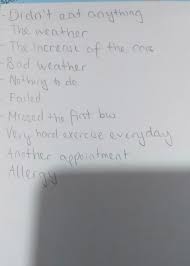 - Didn't eat anything
The weather
- The increase of the
- Bad weather
- Nothing to do
- Failed
- Missed the first bus
- Very hard exercise everyday
- Another appointment
Allergy